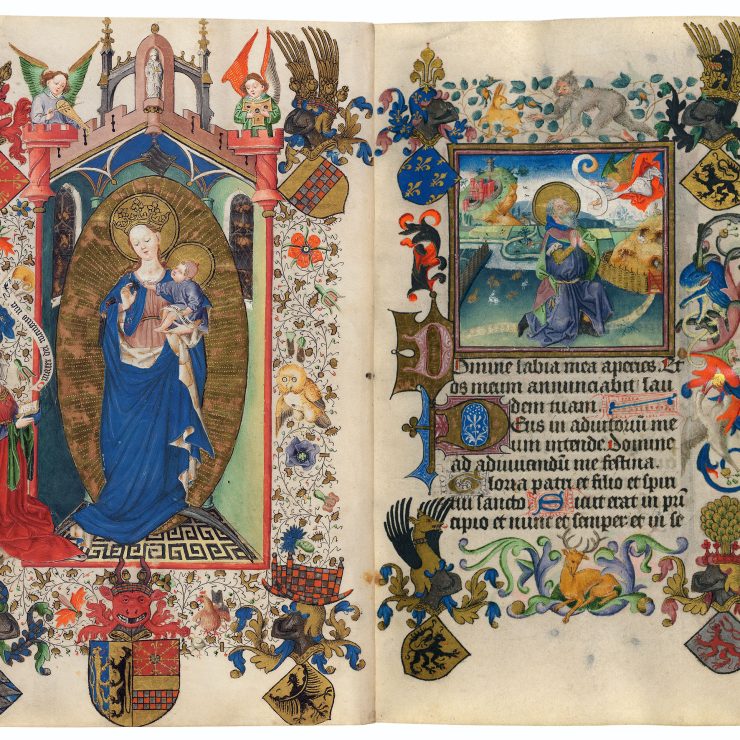 Domine labia mea aperies. Et
os meum annunciabit lau
dem tuam.
Deus in adiutorium me
um intende. Domine
ad adiuuandū me festina.
Gloria patri et filio et spiri
tui sancto Sicut erat in prī
cipio et nunc et semper et in se